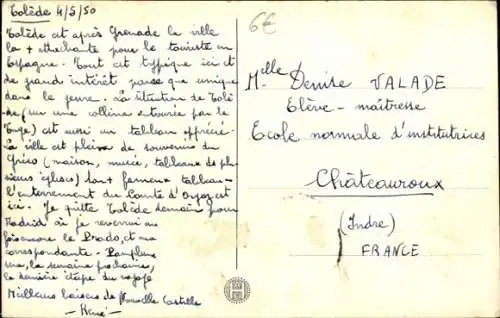 Tolède 4/5/50
Tolède est après Grenade la ville
la + attachante pour le touriste en
Espagne. Tout est typique ici et
de grand intérêt parce que unique
dans le genre. La situation de Tolè-
de (sur une colline entourée par le
Tage) est aussi un tableau apprécié.
La ville est pleine de souvenirs du
Gréco (maison, musée, tableaux de plu
sieurs églises) dont fameux tableau
l'enterrement du Comte d'Orgaz est
ici. Je quitte Tolède demain pour
Madrid où je reverrai
le Prado, et ma
correspondante. Pamplune
sera, la semaine prochaine,
la dernière étape du voyage
Meilleurs baisers de Nouvelle Castille
6€
Melle Denise VALADE
Elève - maîtresse
Ecole normale d'institutrices
Châteauroux
(Indre)
FRANCE